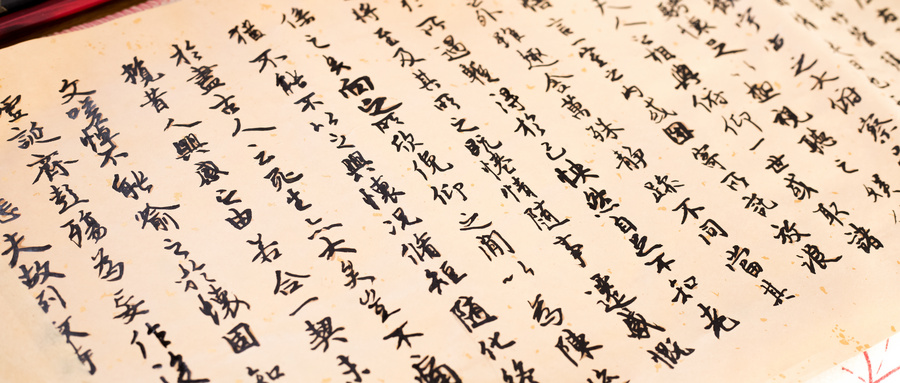 大俯察
懷足以極視聽之娛
人之相與俯仰一世或取諸
悟言一室之內或因寄所託放浪
外雖趣舍萬殊靜躁不同當其
於所遇暫得於己快然自足不知老
將至及其所之既倦情隨事遷感慨
係之矣向之所欣俛仰之間以為陳迹
猶不能不以之興懷況脩短隨化終
於盡古人云死生亦大矣豈不痛
攬昔人興感之由若合一契未
文嗟悼不能喻之於懷固知
虛誕齊彭殤為妄作後
悲夫故列